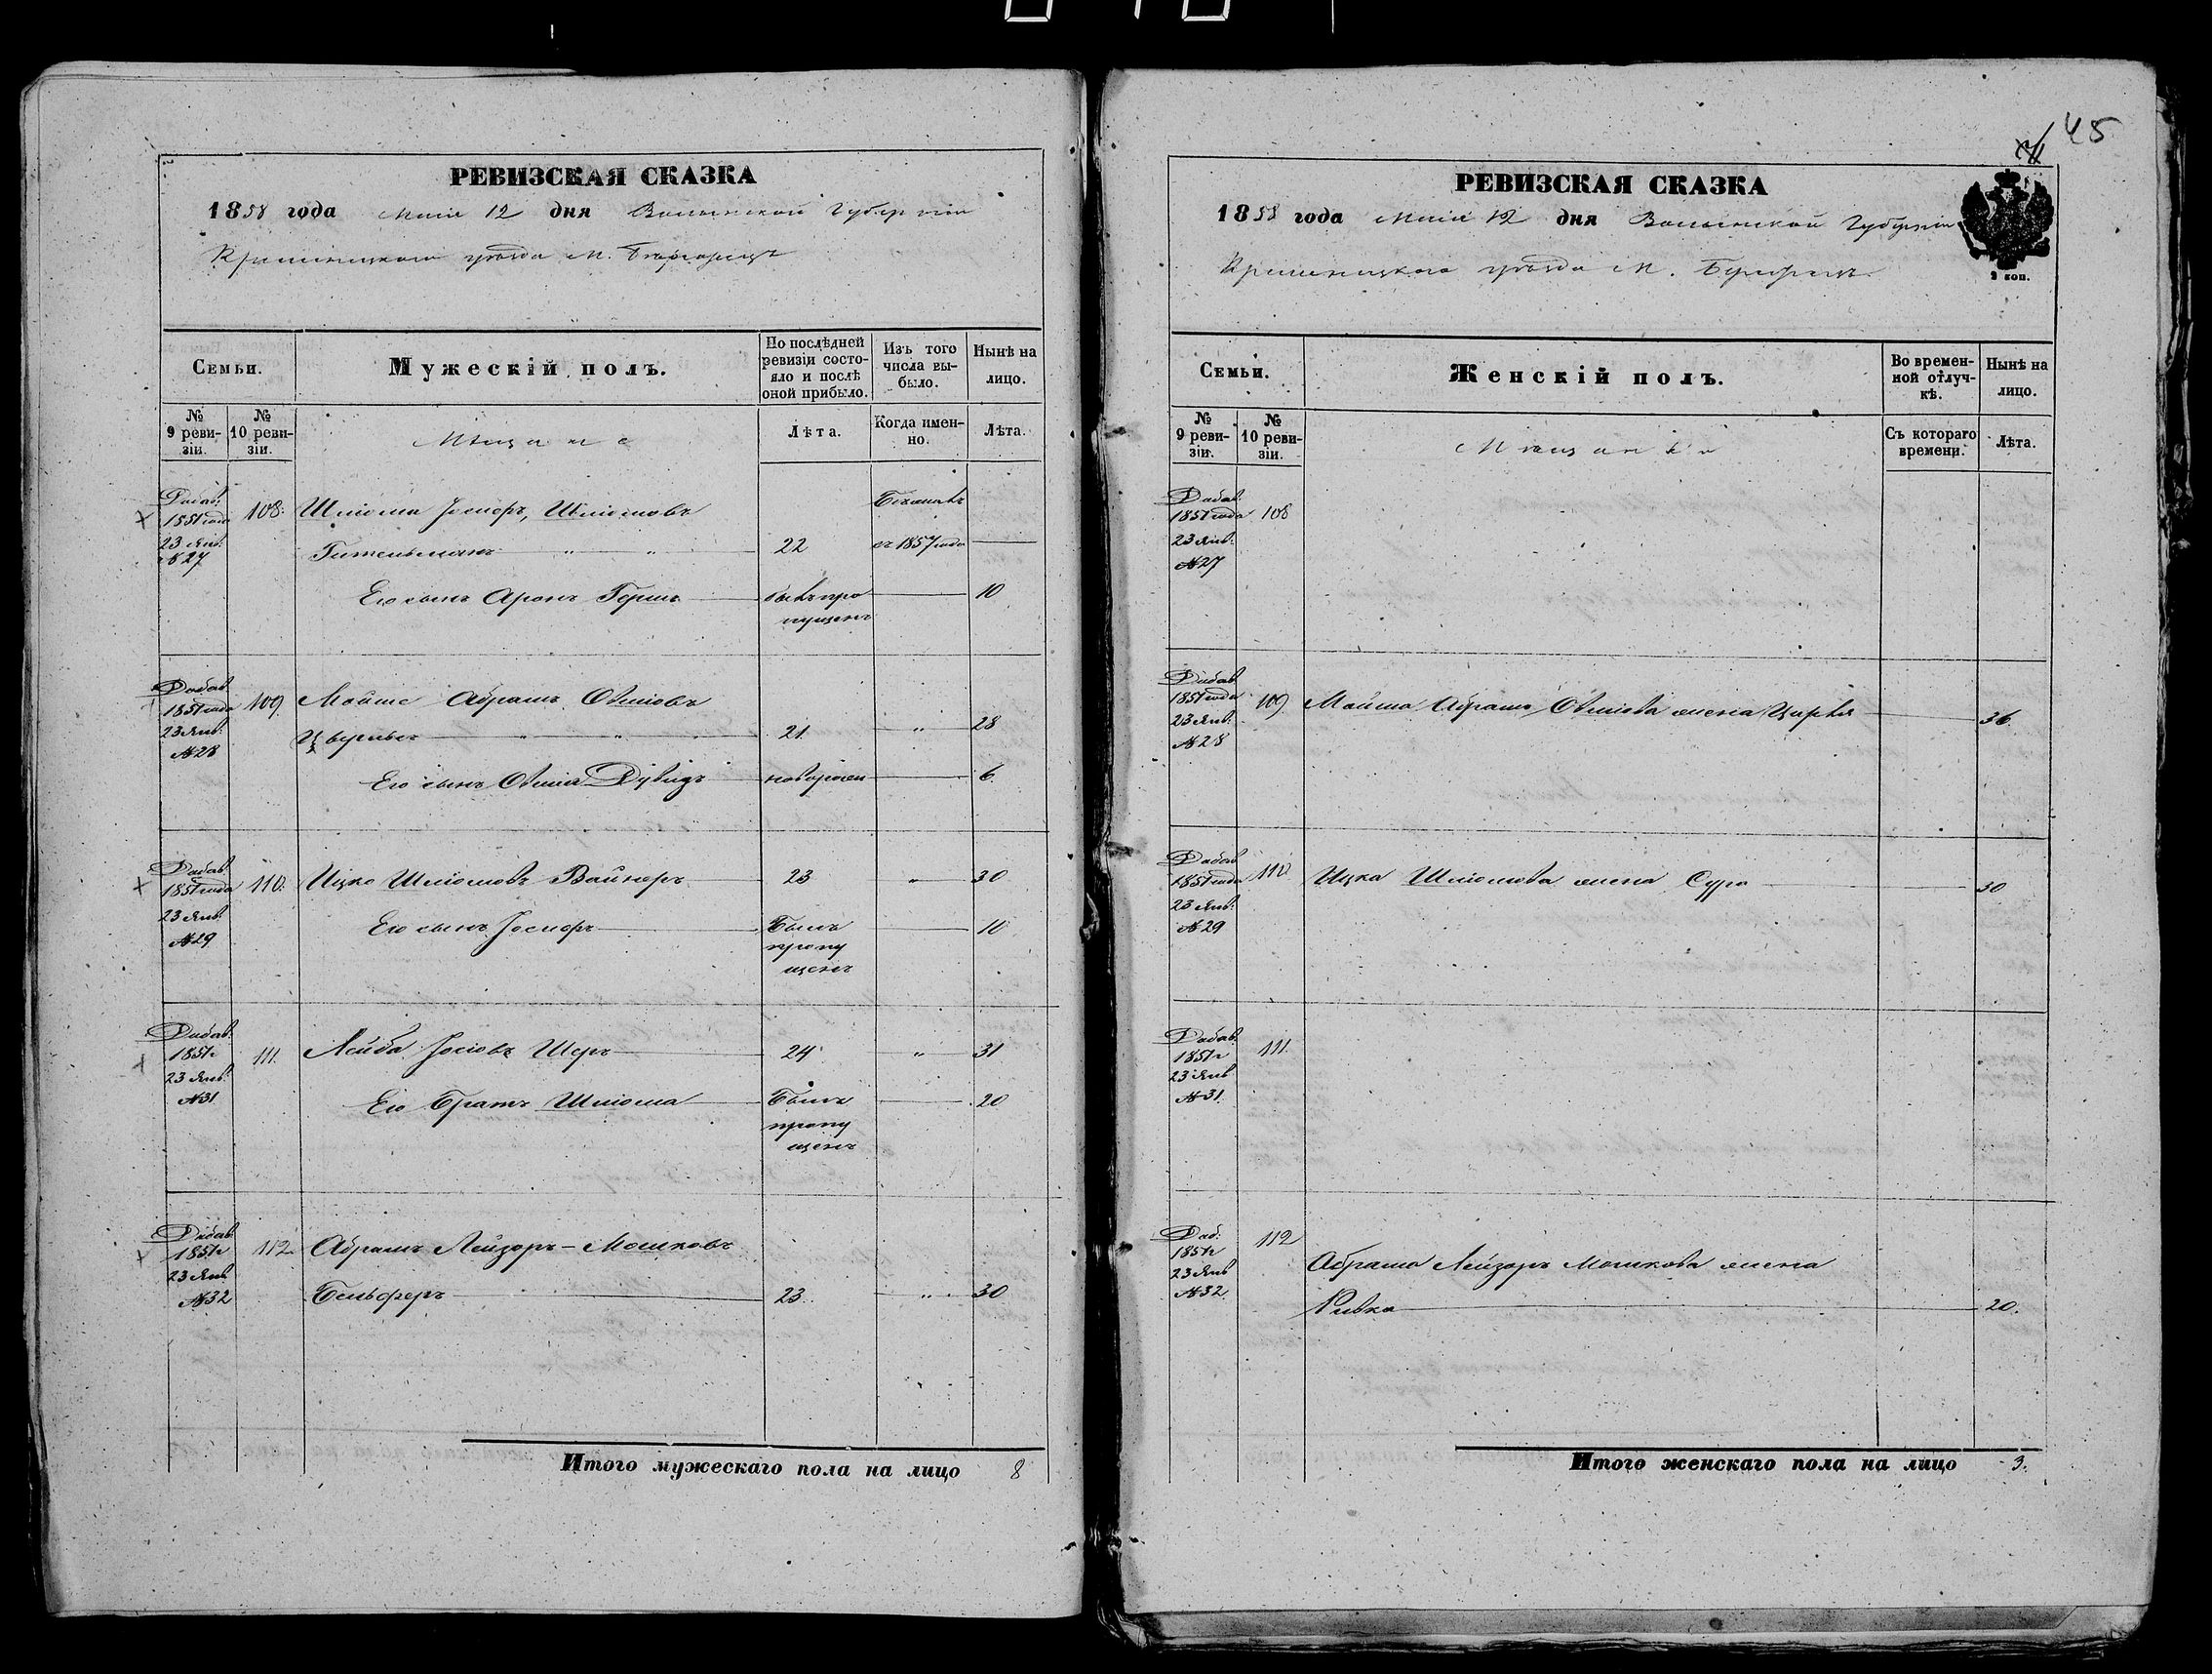 РЕВИЗСКАЯ СКАЗКА
1858 года Маія 12 дня Волынской Губерніи
Кременецкого уѣзда М.
Семьи.
Мужескій полъ.
По послѣдней ревизіи состояло и послѣ оной прибыло.
Изъ того числа выбыло.
Нынѣ на лицо.
№ 9 ревизіи.
№ 10 ревизіи.
Мѣщане
Лѣта.
Когда именно.
Лѣта.
Добав. 1851 года 23 Янв. №27
108.
Шліома Іосифъ, Шліомовъ
22
съ 1857 года
Его сынъ Аронъ Герш
былъ пропущенъ
10
Добав. 1851 года 23 Янв. №28
109.
Мойше Абрамъ Овшіовъ
21
"
28
Его сынъ Овшія Дувидъ
новорожден
6
Добав. 1851 года 23 Янв. №29
110.
Ицко Шліомовъ Вайнеръ
23
"
30
Его сынъ Іосифъ
Былъ пропущенъ
10
Добав. 1851 г 23 Янв. №31
111.
Лейба Іосіовъ Шеръ
24
"
31
Его Братъ Шліома
Былъ пропущенъ
20
Добав 1851 г 23 Янв №32
112
Абрамъ Лейзоръ-Мошковъ
Бельферъ
23
"
30
Итого мужескаго пола на лицо 8
45
РЕВИЗСКАЯ СКАЗКА
1858 года Маія 12 дня Волынской Губерніи
Кременецкого уѣзда М.
Семьи.
Женскій полъ.
Во временной отлучкѣ.
Нынѣ на лицо.
№ 9 ревизіи.
№ 10 ревизіи.
Мѣщанки
Съ котораго времени.
Лѣта.
Добав. 1851 года 23 Янв. №27
108
Добав 1851 года 23 Янв. №28
109
Мойша Абрама Овшіова жена Цирля
36.
Добав 1851 года 23 Янв. №29
110
Ицка Шліомова жена Сура
30
Добав. 1851 г 23 Янв №31.
111.
Доб. 1851 г 23 Янв №32
112
Абрама Лейзора Мошкова жена
Ривка
20.
Итого женскаго пола на лицо 3.